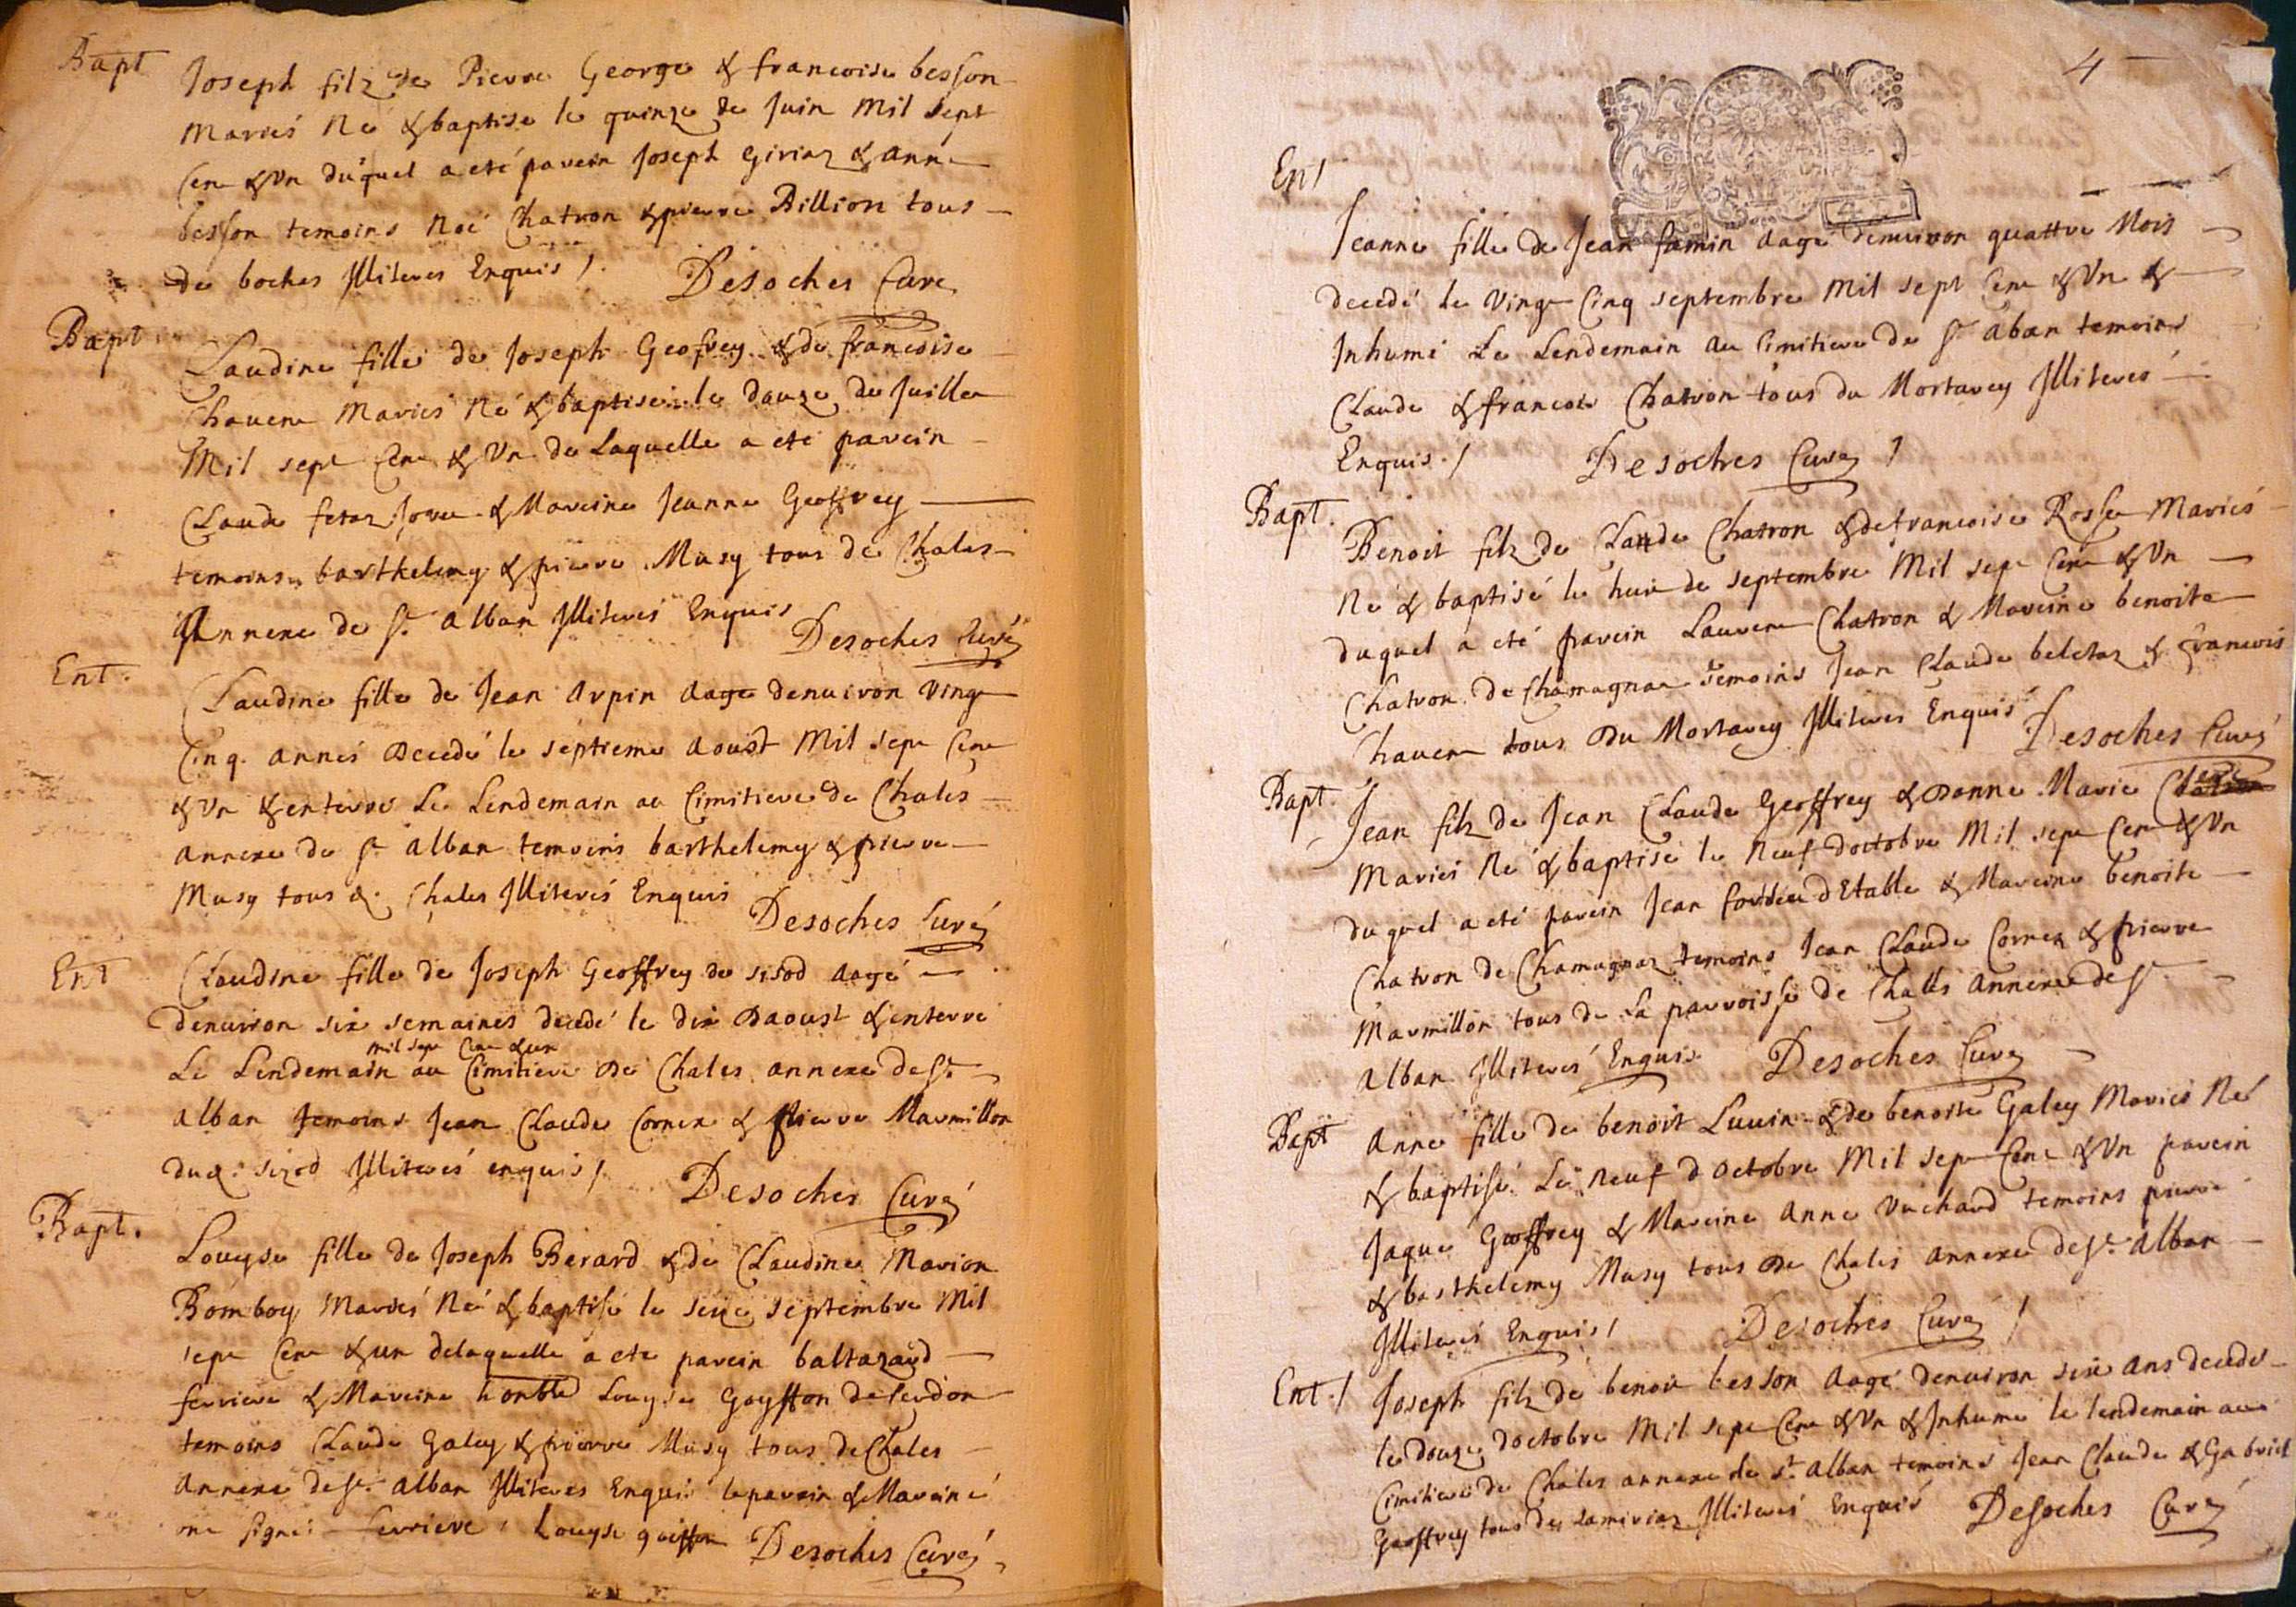 Bapt
Joseph filz de Pierre George & francoise besson
Mariés Né & baptise le quinze de Juin Mil sept
Cent & Vn duquel a eté parein Joseph Giriaz & anne
besson temoins Noé Chatron & pierre Billion tous
de boches Illiteres Enquis /.
Desoches Curé
Bapt
Claudine fille de Joseph Geofrey & de francoise
Chavent Mariés Né & baptisée le douze de Juillet
Mil sept Cent & Vn de Laquelle a eté parein
Claude & Mareine Jeanne Geoffrey
temoins barthelemy & pierre Musy tous de Chales
Annexe de St. alban Illiterés Enquis
Desoches Curé
Ent.
Claudine fille de Jean Arpin aage denuiron Vingt
Cinq années decedé le septieme Aoust Mil sept Cent
& Vn & enterré Le Lendemain au Cimitiere de Chales
annexe de St alban temoins barthelemy & pierre
Musy tous d. Chales Illiterés Enquis
Desoches Curé
Ent
Claudine fille de Joseph Geoffrey de sisod aagé
denuiron six semaines decedé le dix Daoust & enterré
mil sept Cent & un
Le Lendemain au Cimitiere de Chales annexe de St.
alban temoins Jean Claude Cornet & Pierre Marmillon
dud. sizod Illiterés enquis /.
Desoches Curé
Bapt.
Louyse fille de Joseph Berard & de Claudine Marion
Bomboy Mariés Né & baptisé le seize septembre Mil
sept Cent & un delaquelle a ete parein baltazard
ferriere & Mareine honble Louyse Goyffon de Cerdon
temoins Claude Galey & pierre Musy tous de Chales
annexe de St. alban Illiteres Enquis le parein & Mareine
ont signés ferriere. Louyse goiffon Desoches Curé
4
Ent
Jeanne fille de Jean famin aagé denuiron quattre Mois
decedé le Vingt Cinq septembre Mil sept Cent & Vn &
Inhumé Le Lendemain au Cimitiere de St alban temoins
Claude & francois Chatron tous du Mortarey Illiterés
Enquis. / Desoches Curé /
Bapt.
Benoit filz de Claude Chatron & de francoise Rosset Mariés
Né & baptisé le huit de septembre Mil sept Cent & Vn
duquel a eté parein Laurent Chatron & Mareine benoite
Chatron de Chamagnat temoins Jean Claude beletaz & francois
Chavent tous du Mortarey Illiteres Enquis
Desoches Curé
Bapt.
Jean filz de Jean Claude Geoffrey & Danne Marie
Mariés Né & baptisé le Neuf doctobre Mil sept Cent & Vn
duquel a eté parein Jean d Etable & Mareine benoite
Chatron de Chamagnaz temoins Jean Claude Cornet & pierre
Marmillon tous de La parroisse de Chales annexe de St.
alban Illiterés Enquis Desoches Curé
Bapt
Anne fille de benoit Luuin & de benoite Galey Mariés Né
& baptisé Le Neuf d octobre Mil sept Cent & Vn parein
Jaque Geoffrey & Mareine Anne Vuchard temoins pierre
& barthelemy Musy tous de Chales annexe de St. alban
Illiterés Enquis / Desoches Curé /
Ent. /
Joseph filz de benoit besson aagé denuiron six ans decedé
le douze doctobre Mil sept Cent & Vn & Inhumé le lendemain au
Cimitiere de Chales annexe de St. alban temoins Jean Claude & Gabriel
Geoffrey tous de Lamiriaz Illiterés Enquis Desoches Curé